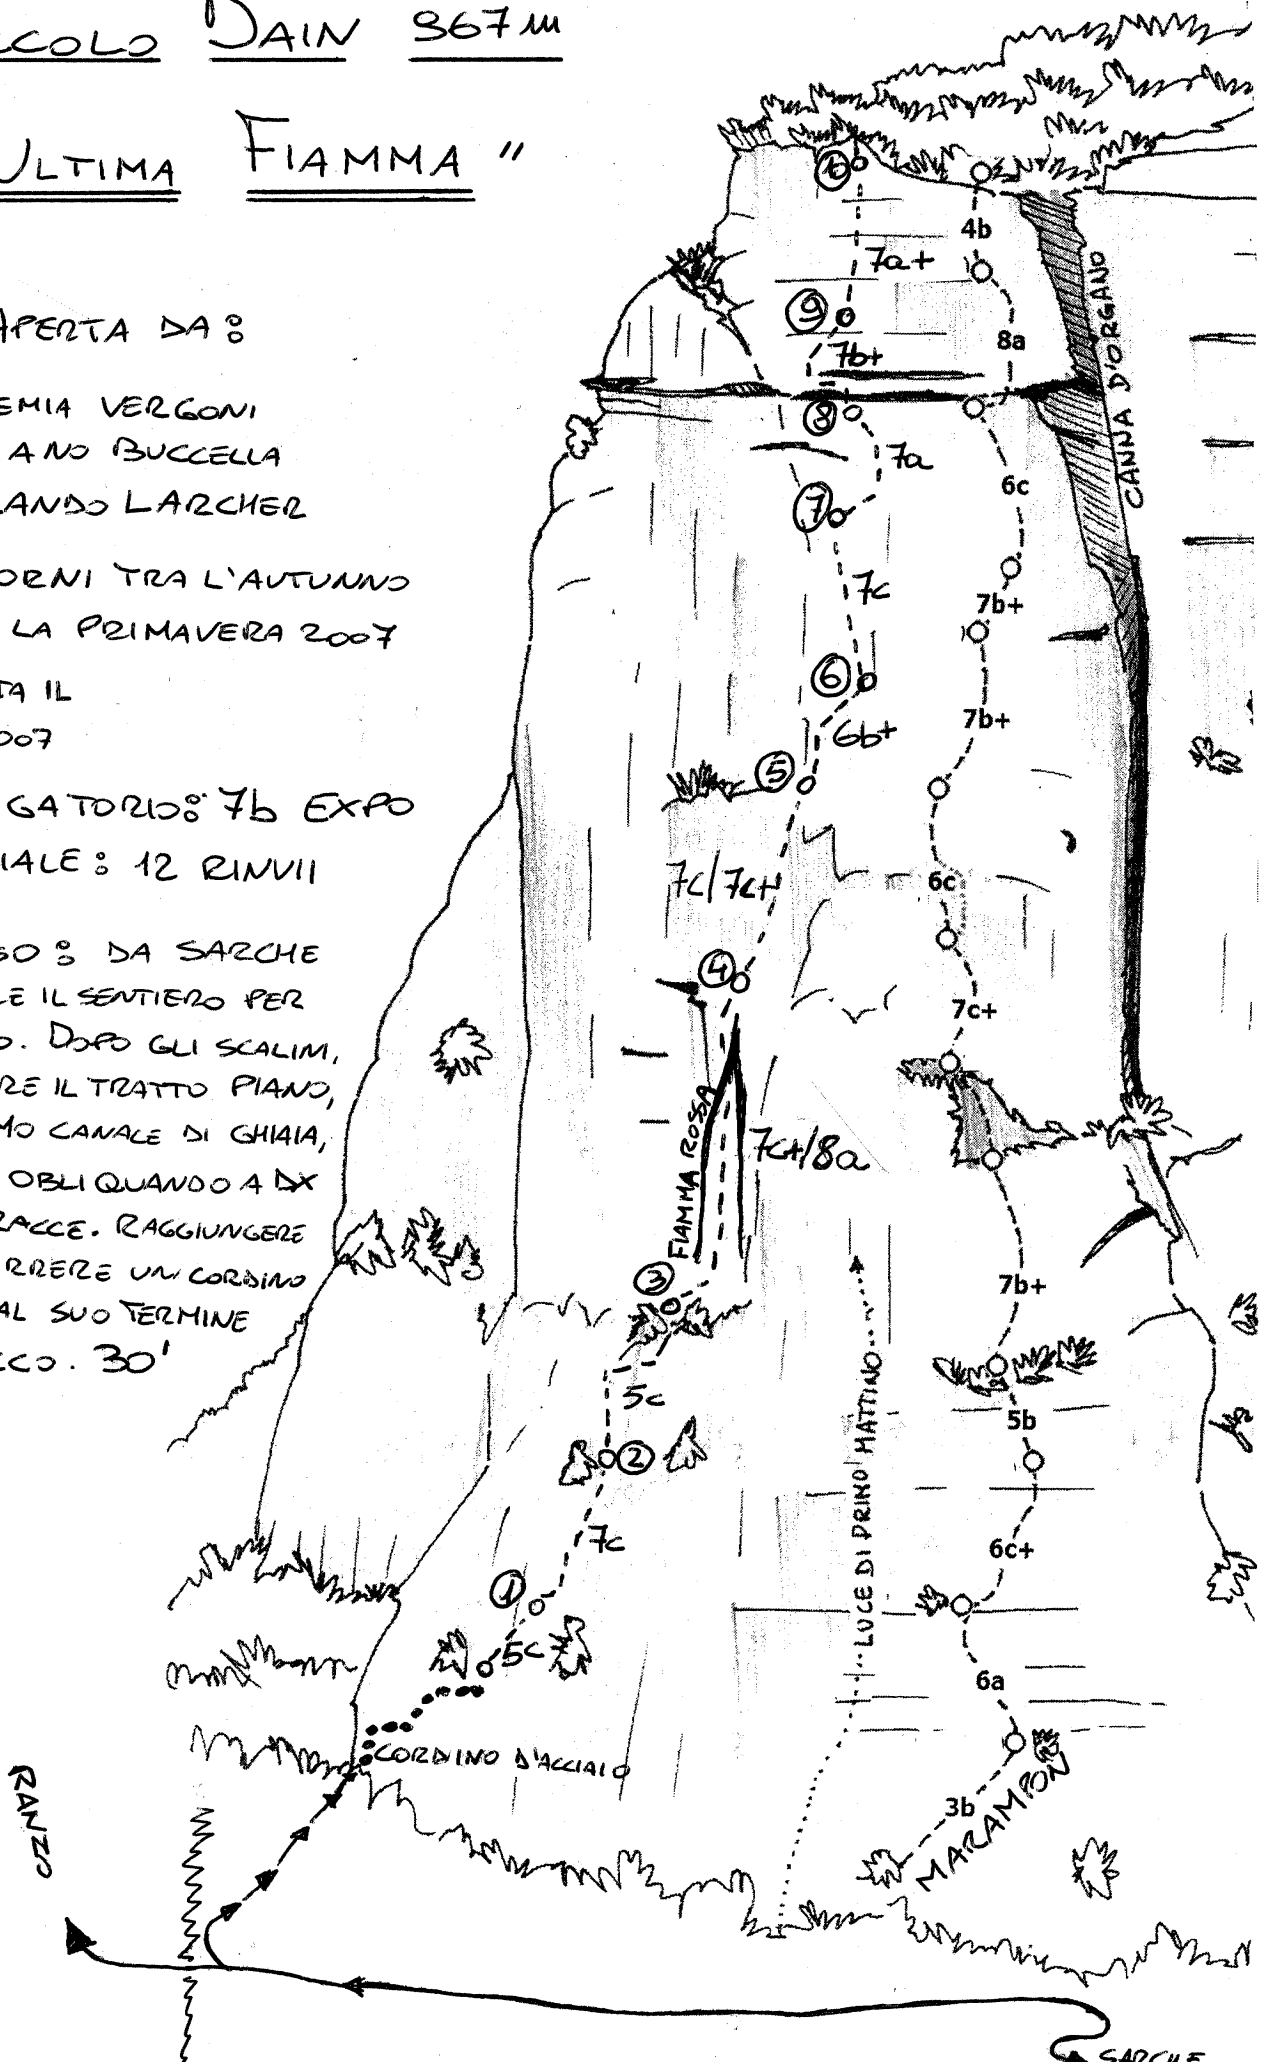 CCOLO DAIN 967 m
ULTIMA FIAMMA "
APERTA DA:
EMIA VERGONI
ANO BUCCELLA
LANDO LARCHER
ORNI TRA L'AUTUNNO
LA PRIMAVERA 2007
TA IL
007
GATORIO: 7b EXPO
IALE: 12 RINVII
SO: DA SARCHE
LE IL SENTIERO PER
O. DOPO GLI SCALINI,
RE IL TRATTO PIANO,
MO CANALE DI GHIAIA,
OBLIQUANDO A DX
RACCE. RAGGIUNGERE
RRERE UN CORDINO
AL SUO TERMINE
CCO. 30'
4b
7a+
9
8a
7b+
CANNA D'ORGANO
8
7a
6c
7
7c
7b+
6
7b+
6b+
5
7c/7c+
6c
4
7c+
FIAMMA ROSSA
7c+/8a
3
7b+
5c
5b
2
LUCE DI PRIMO MATTINO
7c
6c+
1
5c
6a
CORDINO D'ACCIAIO
3b
MARAMPON
RANZO
SARCHE